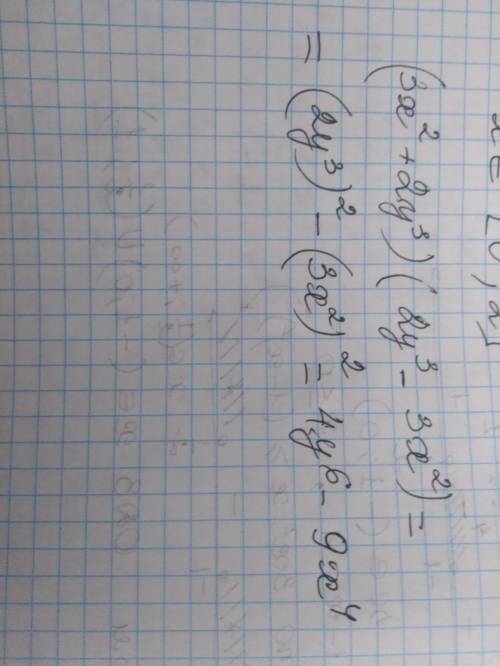 x ∈ [0, 2]
(3x² + 2y³)(2y³ - 3x²) =
= (2y³)² - (3x²)² = 4y⁶ - 9x⁴